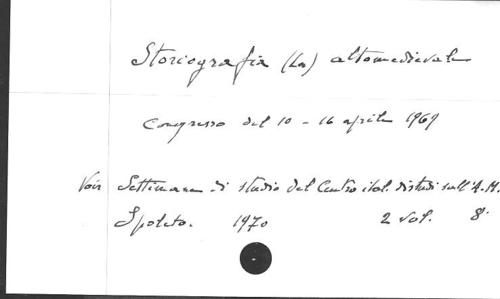 Storiografia (La) altomedievale
Congresso del 10 - 16 aprile 1969
Voir Settimane di studio del Centro ital. di studi sull'A.M.
Spoleto. 1970 2 vol. 8°